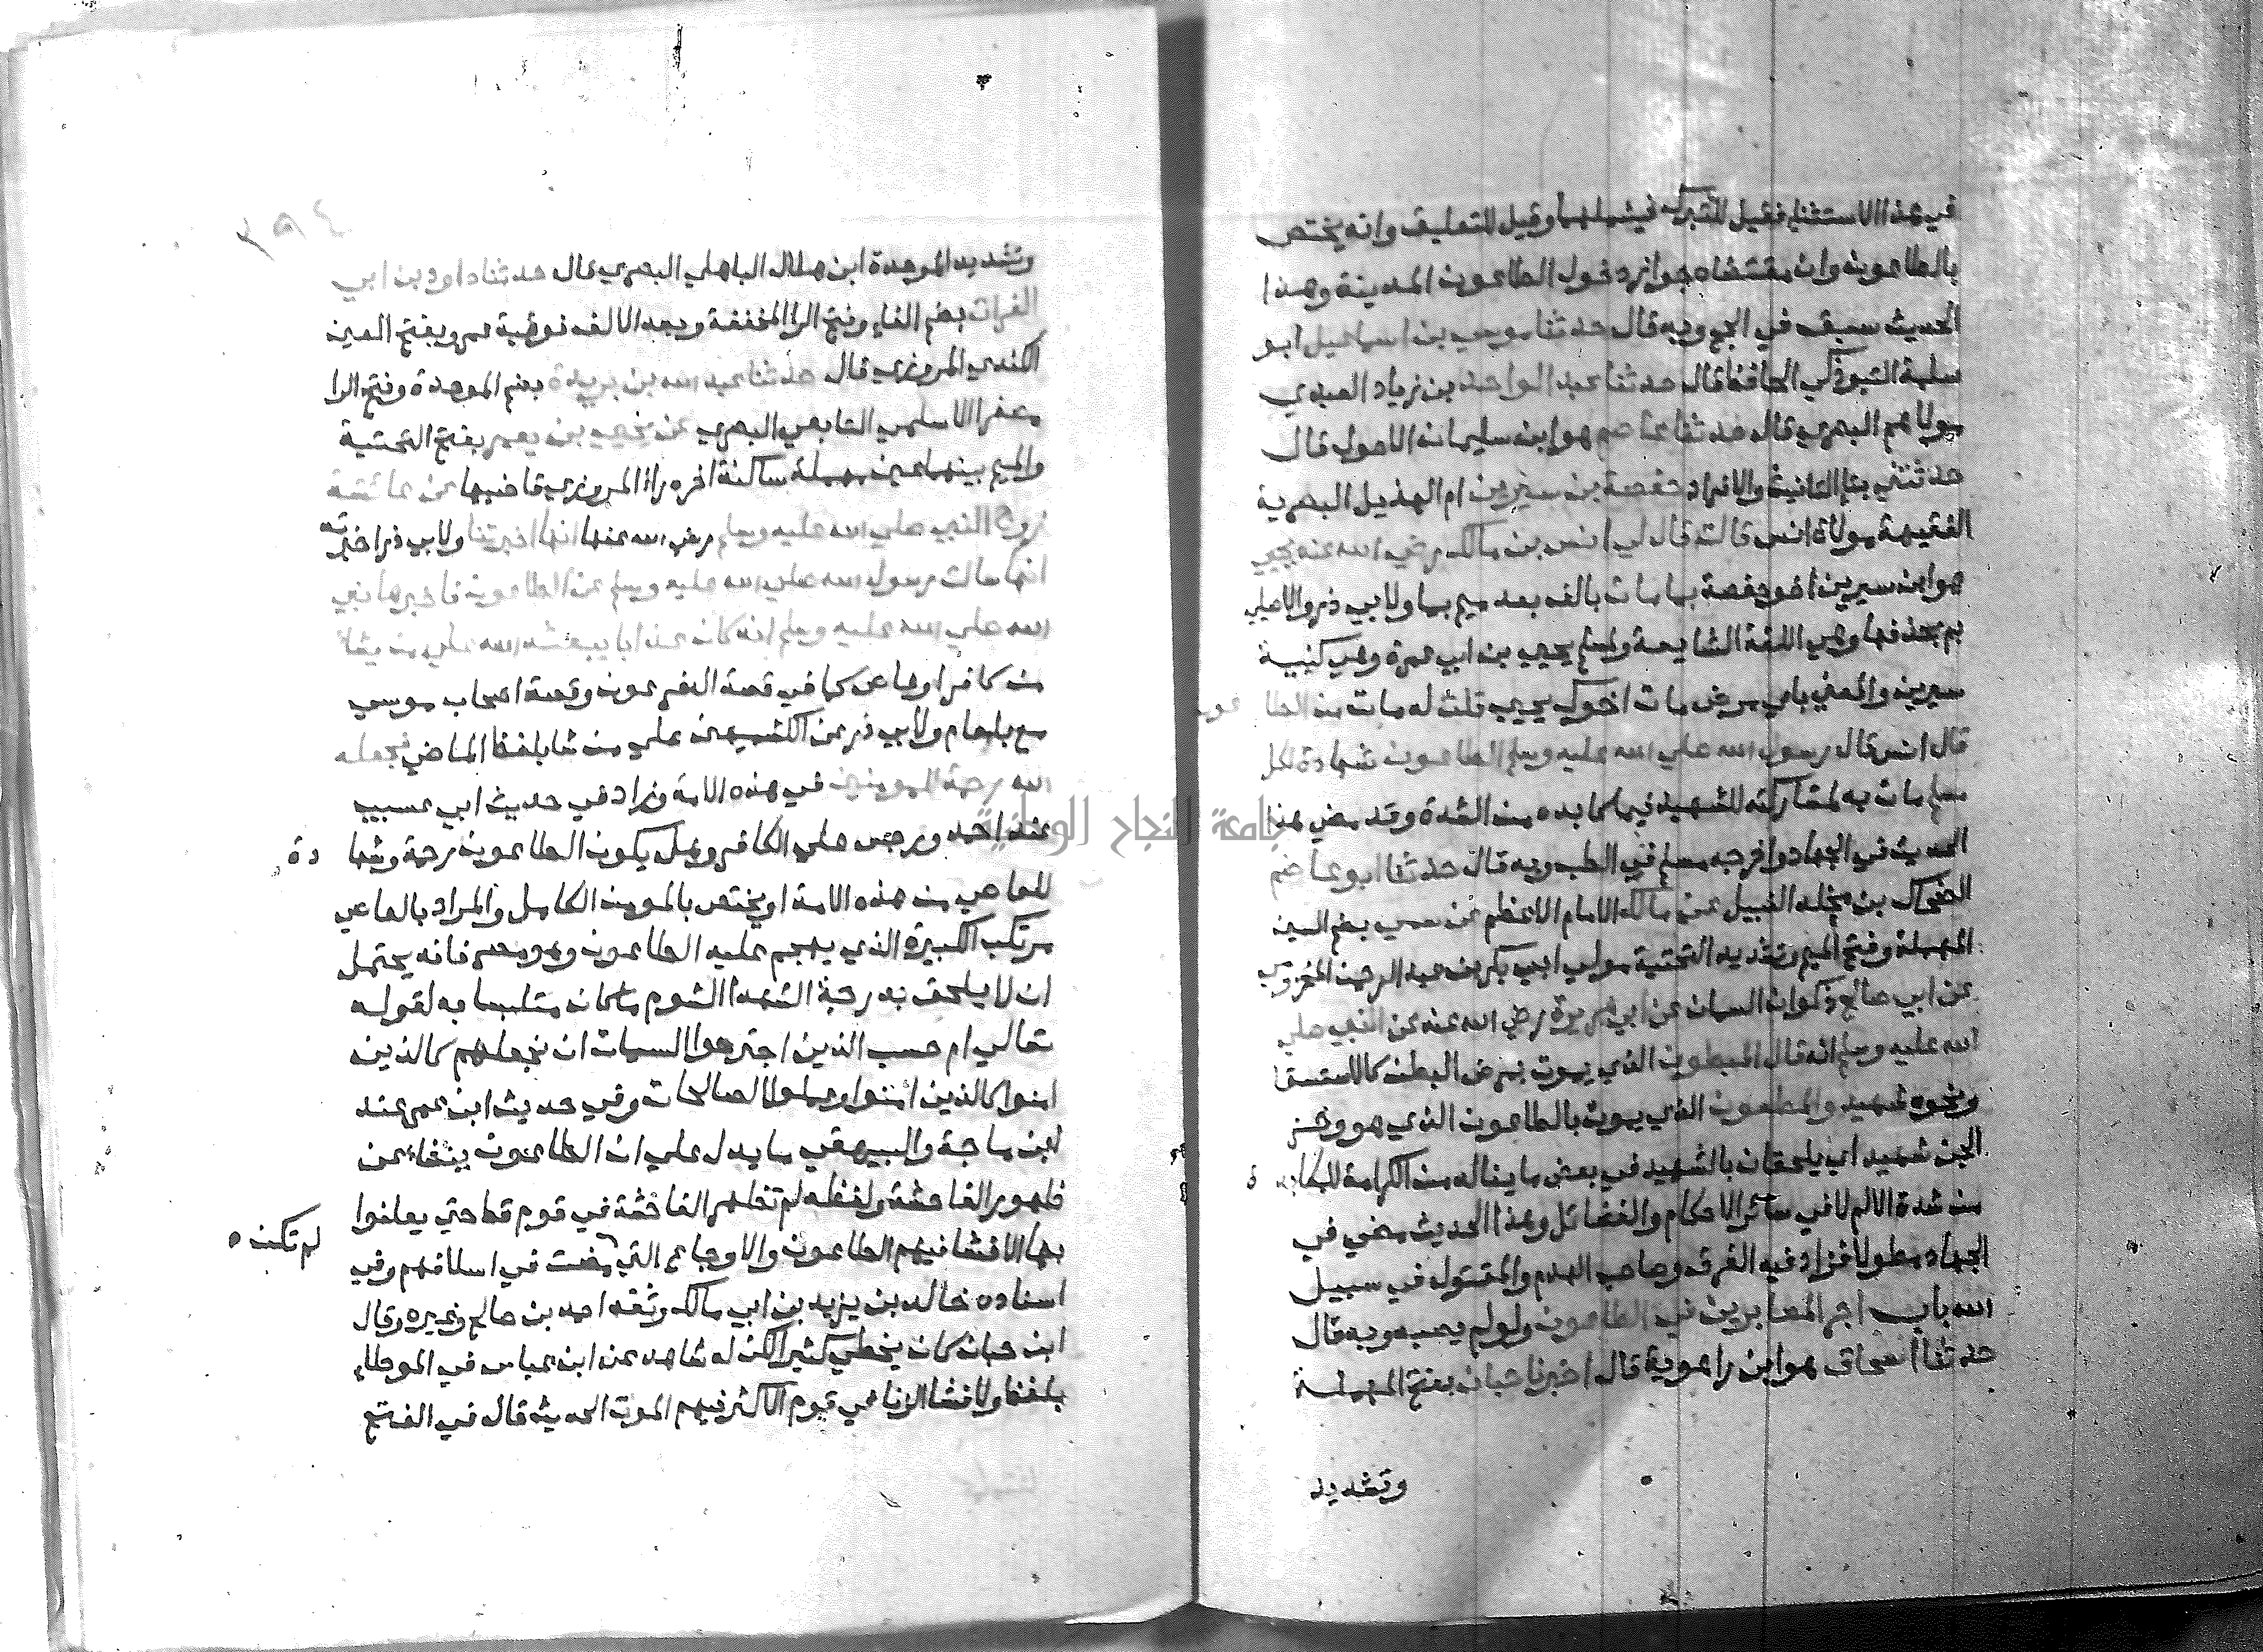 في هذا الاستثناء فقيل للتبرك فيشملهما وقيل للتعليق وانه يختص
بالطاعون وان مقتضاه جواز دخول الطاعون المدينة وهذا
الحديث سبق في الحج وبه قال حدثنا موسي بن اسماعيل ابو
سلمة التبوذكي الحافظ قال حدثنا عبد الواحد بن زياد العبدي
مولاهم البصري قال حدثنا عاصم هو ابن سليمان الاحول قال
حدثتني بتا التانيث والافراد حفصة بن سيرين ام الهذيل البصرية
الفقيهة مولاة انس قالت قال لي انس بن مالك رضي الله عنه يحيي
هو ابن سيرين اخو حفصة بما مات بالف بعد ميم بما ولابي ذر والاصيلي
بم بحذفها وهي اللغة الشايعة ولمسلم يحيي بن ابي عمرة وهي كنية
سيرين والمعني باي مرض مات اخوك يحيي قلت له مات من الطاعون
قال انس قال رسول الله صلي الله عليه وسلم الطاعون شهادة لكل
مسلم مات به لمشاركته للشهيد فيما كابده من الشدة وقد مضي هذا
الحديث في الجهاد واخرجه مسلم في الطب وبه قال حدثنا ابو عاصم
الضحاك بن مخلد النبيل عن مالك الامام الاعظم عن سمي بضم السين
المهملة وفتح الميم وتشديد التحتية مولي ابي بكر بن عبد الرحمن المخزومي
عن ابي صالح ذكوان السمان عن ابي هريرة رضي الله عنه عن النبي صلي
الله عليه وسلم انه قال المبطون الذي يموت بمرض البطن كالاستسقا
ونحوه شهيد والمطعون الذي يموت بالطاعون الذي هو وخز
الجن شهيد اي يلحقان بالشهيد في بعض ما يناله من الكرامة للمكابدة
من شدة الالم لا في سائر الاحكام والفضائل وهذا الحديث مضي في
الجهاد مطولا فزاد فيه الغرق وصاحب الهدم والمقتول في سبيل
الله باب اجر الصابرين في الطاعون ولو لم يصبه وبه قال
حدثنا اسحاق هو ابن راهوية قال اخبرنا حبان بفتح المهملة
وتشديد
وتشديد الموحدة ابن هلال الباهلي البصري قال حدثنا داود بن ابي
الفرات بضم الفاء وفتح الرا المخففة وبعد الالف فوقية عمرو بفتح العين
الكندي المروزي قال حدثنا عبد الله بن بريدة بضم الموحدة وفتح الرا
مصغرا الاسلمي التابعي البصري عن يحيي بن يعمر بفتح التحتية
والميم بينهما عين مهملة ساكنة اخره راء المروزي قاضيها عن عائشة
زوج النبي صلي الله عليه وسلم رضي الله عنها انها اخبرتنا ولابي ذر اخبرته
انها سالت رسول الله صلي الله عليه وسلم عن الطاعون فاخبرها نبي
الله صلي الله عليه وسلم انه كان عذابا يبعثه الله علي من يشا
من كافر او عاص كما في قصة ال فرعون وقصة اصحاب موسي
مع بلعام ولابي ذر عن الكشميهني علي من شا بلفظ الماضي فجعله
الله رحمة للمومنين في هذه الامة وزاد في حديث ابي عسيب
عند احمد ورجس علي الكافر وهل يكون الطاعون رحمة وشهادة
للعاصي من هذه الامة او يختص بالمومن الكامل والمراد بالعاصي
مرتكب الكبيرة الذي يهجم عليه الطاعون وهو مصر فانه يحتمل
ان لا يلحق بدرجة الشهدا لشوم ما كان متلبسا به لقوله
تعالي ام حسب الذين اجترحوا السيات ان نجعلهم كالذين
امنوا كالذين امنوا وعملوا الصالحات وفي حديث ابن عمر عند
ابن ماجة والبيهقي ما يدل علي ان الطاعون ينشا عن
ظهور الفاحشة ولفظه لم تظهر الفاحشة في قوم قط حتي يعلنوا
بها الا فشا فيهم الطاعون والاوجاع التي مضت في اسلافهم وفي
لم تكن
اسناده خالد بن يزيد بن ابي مالك وثقه احمد بن صالح وغيره وقال
ابن حبان كان يخطي كثيرا لكن له شاهد عن ابن عباس في الموطاء
بلفظ ولا فشا الزنا في قوم الا كثر فيهم الموت الحديث قال في الفتح
جامعة النجاح الوطنية